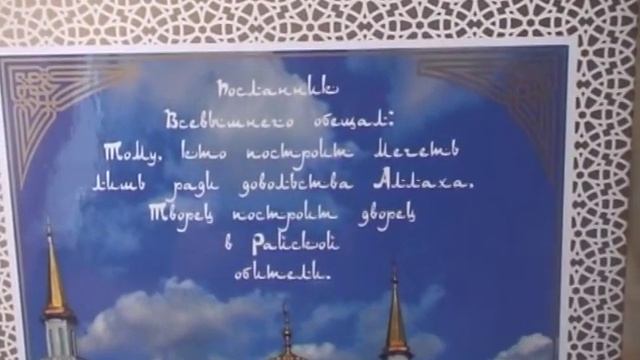 Посланник
Всевышнего обещал:
Тому, кто построит Мечеть
лишь ради довольства Аллаха,
Творец построит дворец
в Райской
обители.